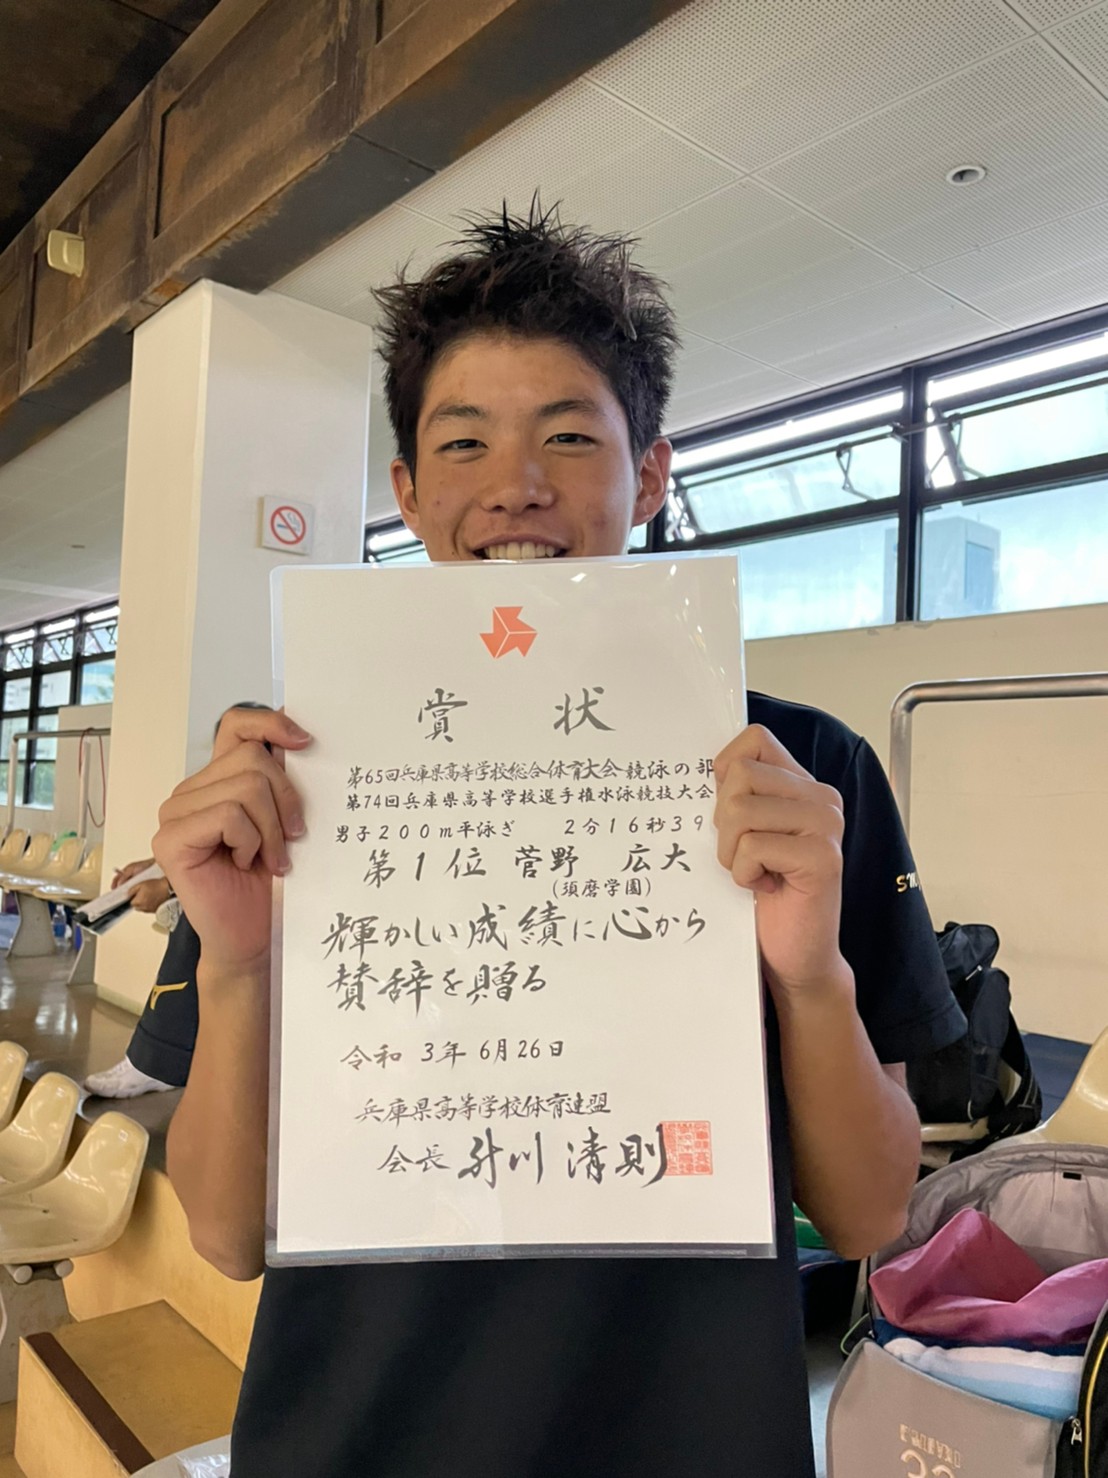 賞状
第65回兵庫県高等学校総合体育大会競泳の部
第74回兵庫県高等学校選手権水泳競技大会
男子200m平泳ぎ 2分16秒39
第1位 菅野 広大
(須磨学園)
輝かしい成績に心から
賛辞を贈る
令和 3年 6月26日
兵庫県高等学校体育連盟
会長 升川 清則